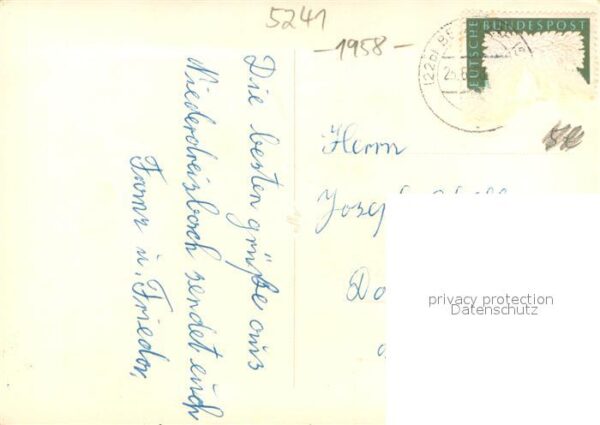 5241
-1958-
DEUTSCHE BUNDESPOST
(22b) BE
Die besten grüße aus
Niederdreisbach sendet euch
Franz u. Frieda,
Herrn
Josef
privacy protection
Datenschutz